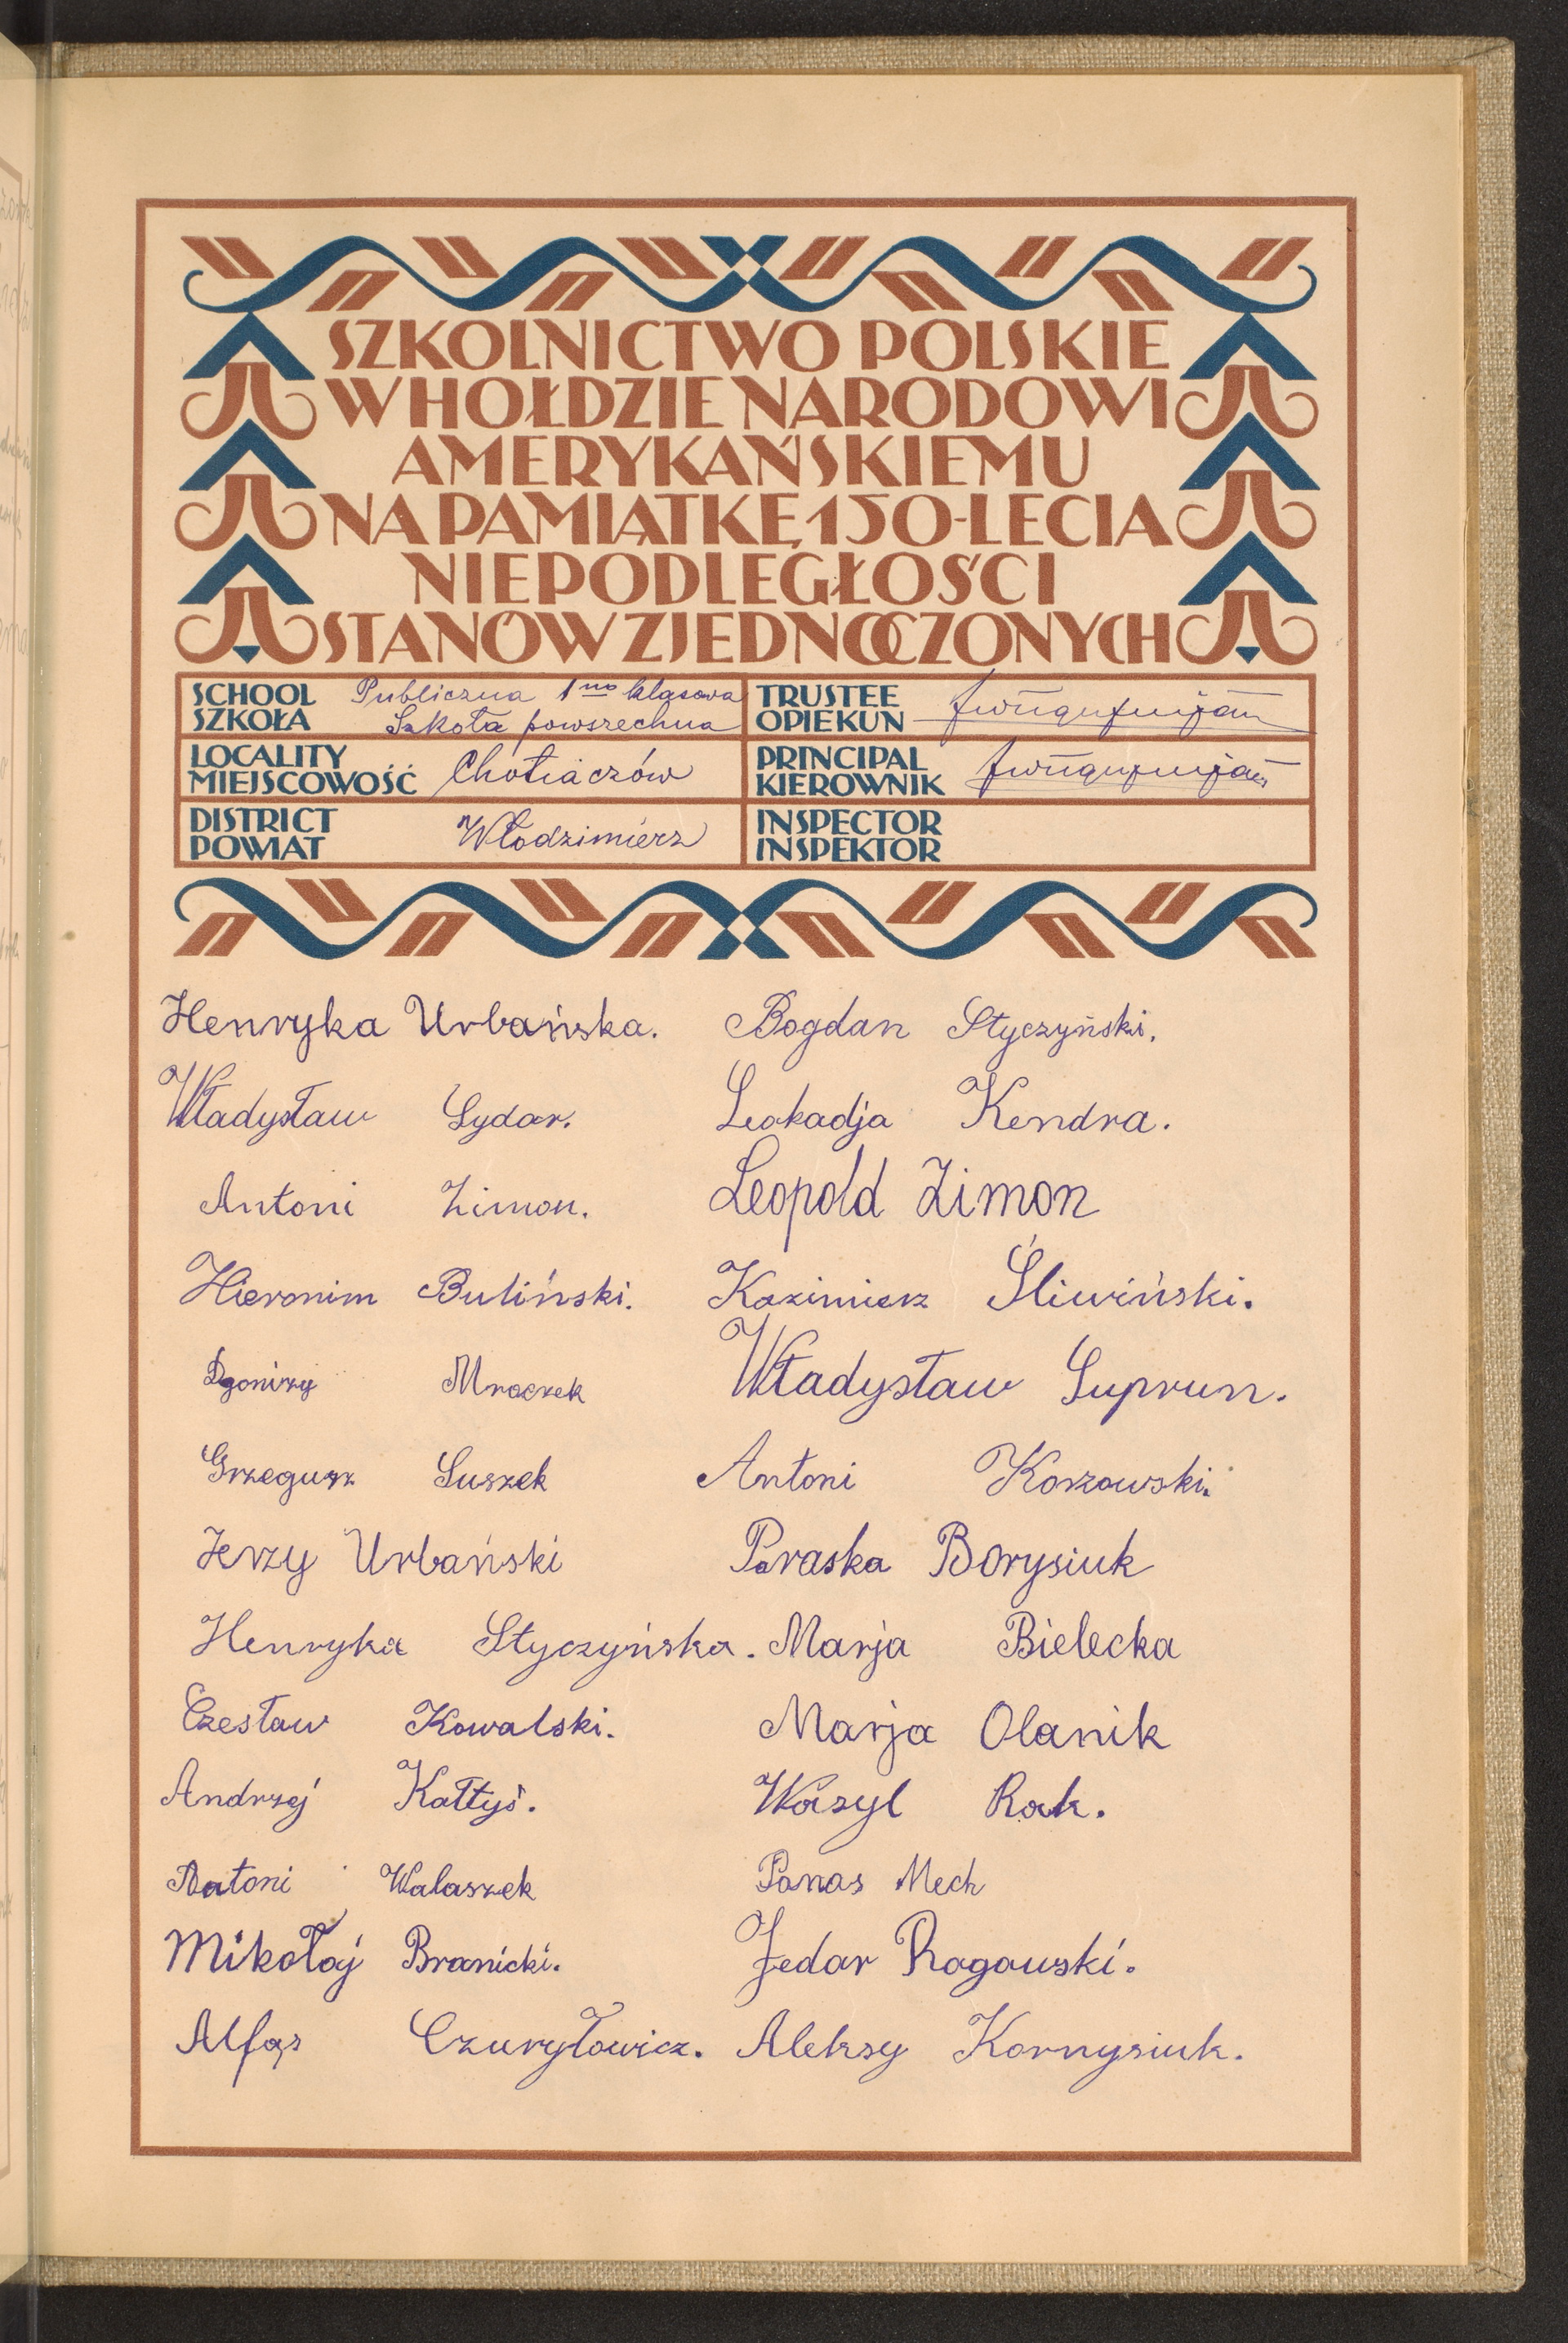 SZKOLNICTWO POLSKIE
W HOŁDZIE NARODOWI
AMERYKAŃSKIEMU
NA PAMIĄTKĘ 150-LECIA
NIEPODLEGŁOŚCI
STANÓW ZJEDNOCZONYCH
SCHOOL
SZKOŁA
Publiczna 1no klasowa
Szkoła powszechna
TRUSTEE
OPIEKUN
LOCALITY
MIEJSCOWOŚĆ
Chotiaczów
PRINCIPAL
KIEROWNIK
DISTRICT
POWIAT
Włodzimierz
INSPECTOR
INSPEKTOR
Henryka Urbańska. Bogdan Styczyński.
Władysław Sydar. Leokadja Kendra.
Antoni Zimon. Leopold Zimon
Hieronim Buliński. Kazimierz Śliwiński.
Mroczek Władysław Suprun.
Grzegusz Suszek Antoni Korzowski.
Jerzy Urbański Paraska Borysiuk
Henryka Styczyńska. Marja Bielecka
Czesław Kowalski. Marja Olanik
Andrzej Kałtyś. Wasyl Rak.
Antoni Walaszek Panas Mech
Mikołaj Branicki. Fedar Ragauski.
Czuryłowicz. Aleksy Kornysiuk.